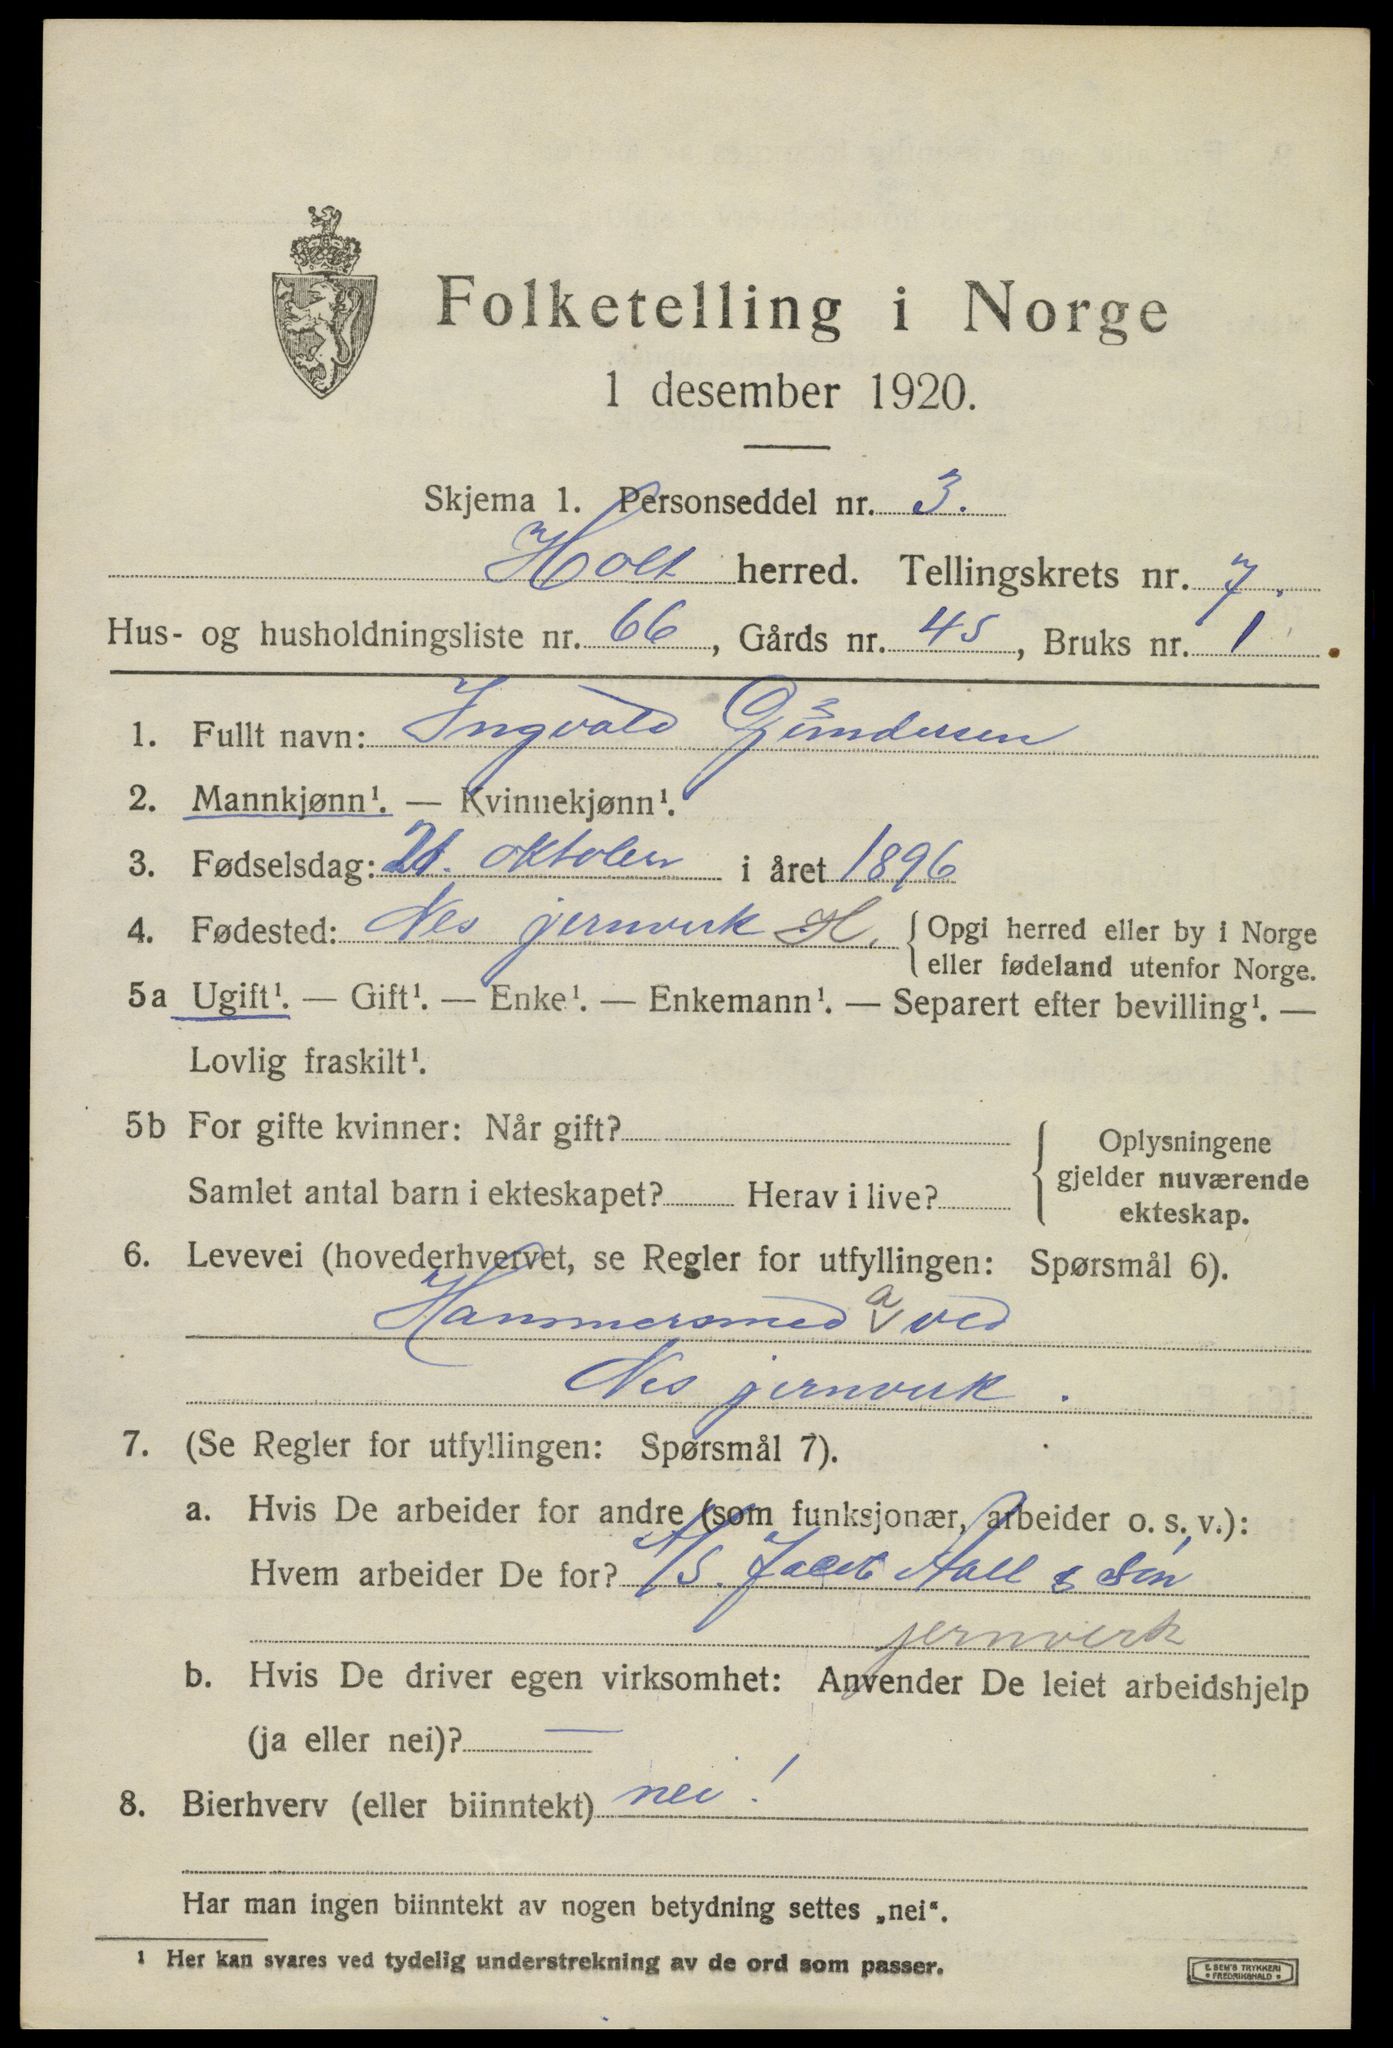 Folketelling i Norge
1 desember 1920.
Skjema 1. Personseddel nr. 3.
Holt herred. Tellingskrets nr. 7.
Hus- og husholdningsliste nr. 66, Gårds nr. 45, Bruks nr. 1
1. Fullt navn: Ingvald Gundersen
2. Mannkjønn¹. — Kvinnekjønn¹.
3. Fødselsdag: 21. oktober i året 1896
4. Fødested: Nes jernverk H. { Opgi herred eller by i Norge
eller fødeland utenfor Norge.
5a Ugift¹. — Gift¹. — Enke¹. — Enkemann¹. — Separert efter bevilling¹. —
Lovlig fraskilt¹.
5b For gifte kvinner: Når gift?
Samlet antal barn i ekteskapet? Herav i live?
{ Oplysningene
gjelder nuværende
ekteskap.
6. Levevei (hovederhvervet, se Regler for utfyllingen: Spørsmål 6).
Hammersmed a ved
Nes jernverk.
7. (Se Regler for utfyllingen: Spørsmål 7).
a. Hvis De arbeider for andre (som funksjonær, arbeider o. s. v.):
Hvem arbeider De for? A/S. Jacob Aall & Søn
jernverk
b. Hvis De driver egen virksomhet: Anvender De leiet arbeidshjelp
(ja eller nei)? —
8. Bierhverv (eller biinntekt) nei!
Har man ingen biinntekt av nogen betydning settes „nei“.
¹ Her kan svares ved tydelig understrekning av de ord som passer.
E. SEM'S TRYKKERI
* FREDRIKSHALD *